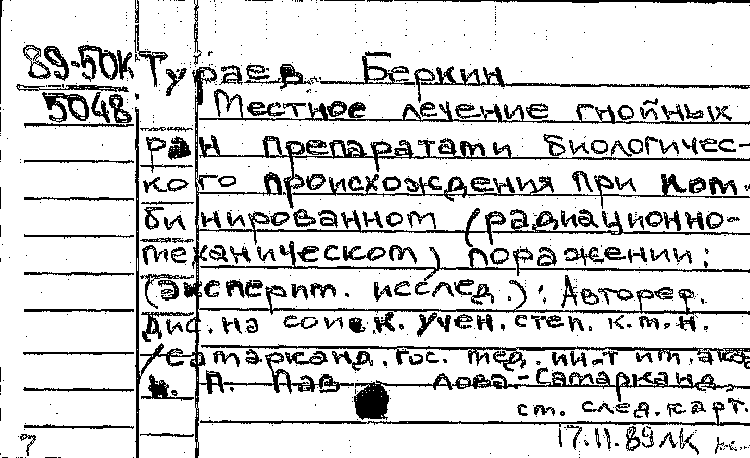 89-50К Тураев Беркин
5048 Местное лечение гнойных
ран препаратами биологичес-
кого происхождения при ком-
бинированном (радиационно-
механическом) поражении:
(эксперим. исслед.): Автореф.
дис. на соиск. учен. степ. к.м.н.
/Самарканд. гос. мед. ин-т им. акад
И. П. Павлова.- Самарканд,
см. след. карт.
17.11.89 ЛК